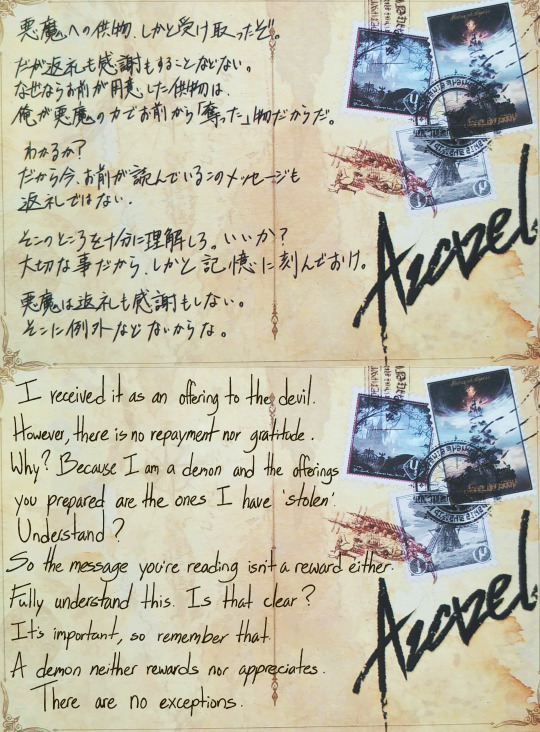 悪魔への供物、しかと受け取ったぞ。
だが返礼も感謝もすることなどない。
なぜならお前が用意した供物は、
俺が悪魔の力でお前から「奪った」物だからだ。
わかるか?
だから今、お前が読んでいるこのメッセージも
返礼ではない。
そこのところを十分に理解しろ。いいか?
大切な事だから、しかと記憶に刻んでおけ。
悪魔は返礼も感謝もしない。
そこに例外などないからな。
Azazel.
I received it as an offering to the devil.
However, there is no repayment nor gratitude.
Why? Because I am a demon and the offerings
you prepared are the ones I have 'stolen'.
Understand?
So the message you're reading isn't a reward either.
Fully understand this. Is that clear?
It's important, so remember that.
A demon neither rewards nor appreciates.
There are no exceptions.
Azazel.